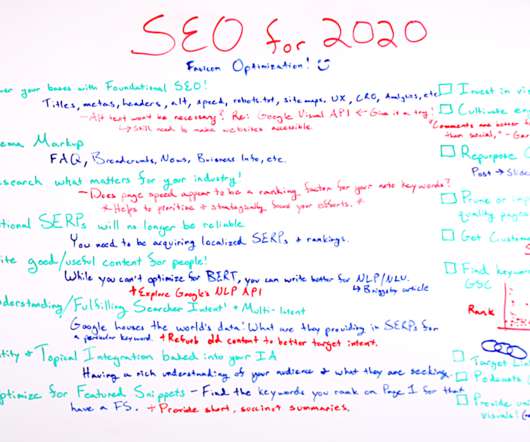 SEO for 2020
Favicon Optimization!
your bases with Foundational SEO!
Titles, metas, headers, alt, speed, robots.txt, sitemaps, UX, CRO, Analytics, etc.
- Alt text won't be necessary? Re: Google Visual API ← Give it a try!
↳ Still need to make websites accessible.
Markup
FAQ, Breadcrumbs, News, Business Info, etc.
search what matters for your industry!
- Does page speed appear to be a ranking factor for your keywords?
* Helps to prioritize + strategically your efforts. *
tional SERPs will no longer be reliable
You need to be acquiring localized SERPs + rankings.
good/useful content for people!
While you can't optimize for BERT, you can write better for NLP/NLU.
+ Explore Google's NLP API
↳ Briggsby article
derstanding/Fulfilling Searcher Intent * Multi-intent
Google houses the world's data! What are they providing in SERPs for
a particular keyword. + Refurb old content to better target intent.
tity + Topical Integration baked into your IA
Having a rich understanding of your audience + what they are seeking.
ptimize for Featured Snippets - Find the keywords you rank on Page 1 for that
have a FS. + Provide short, succinct summaries.
Invest in
Cultivate
"Comments are better
than social," - 
Repurpose
Post →
Prune or
quality
Get
Find
GSC
Rank
Target
Podcasts
Provide
visuals!